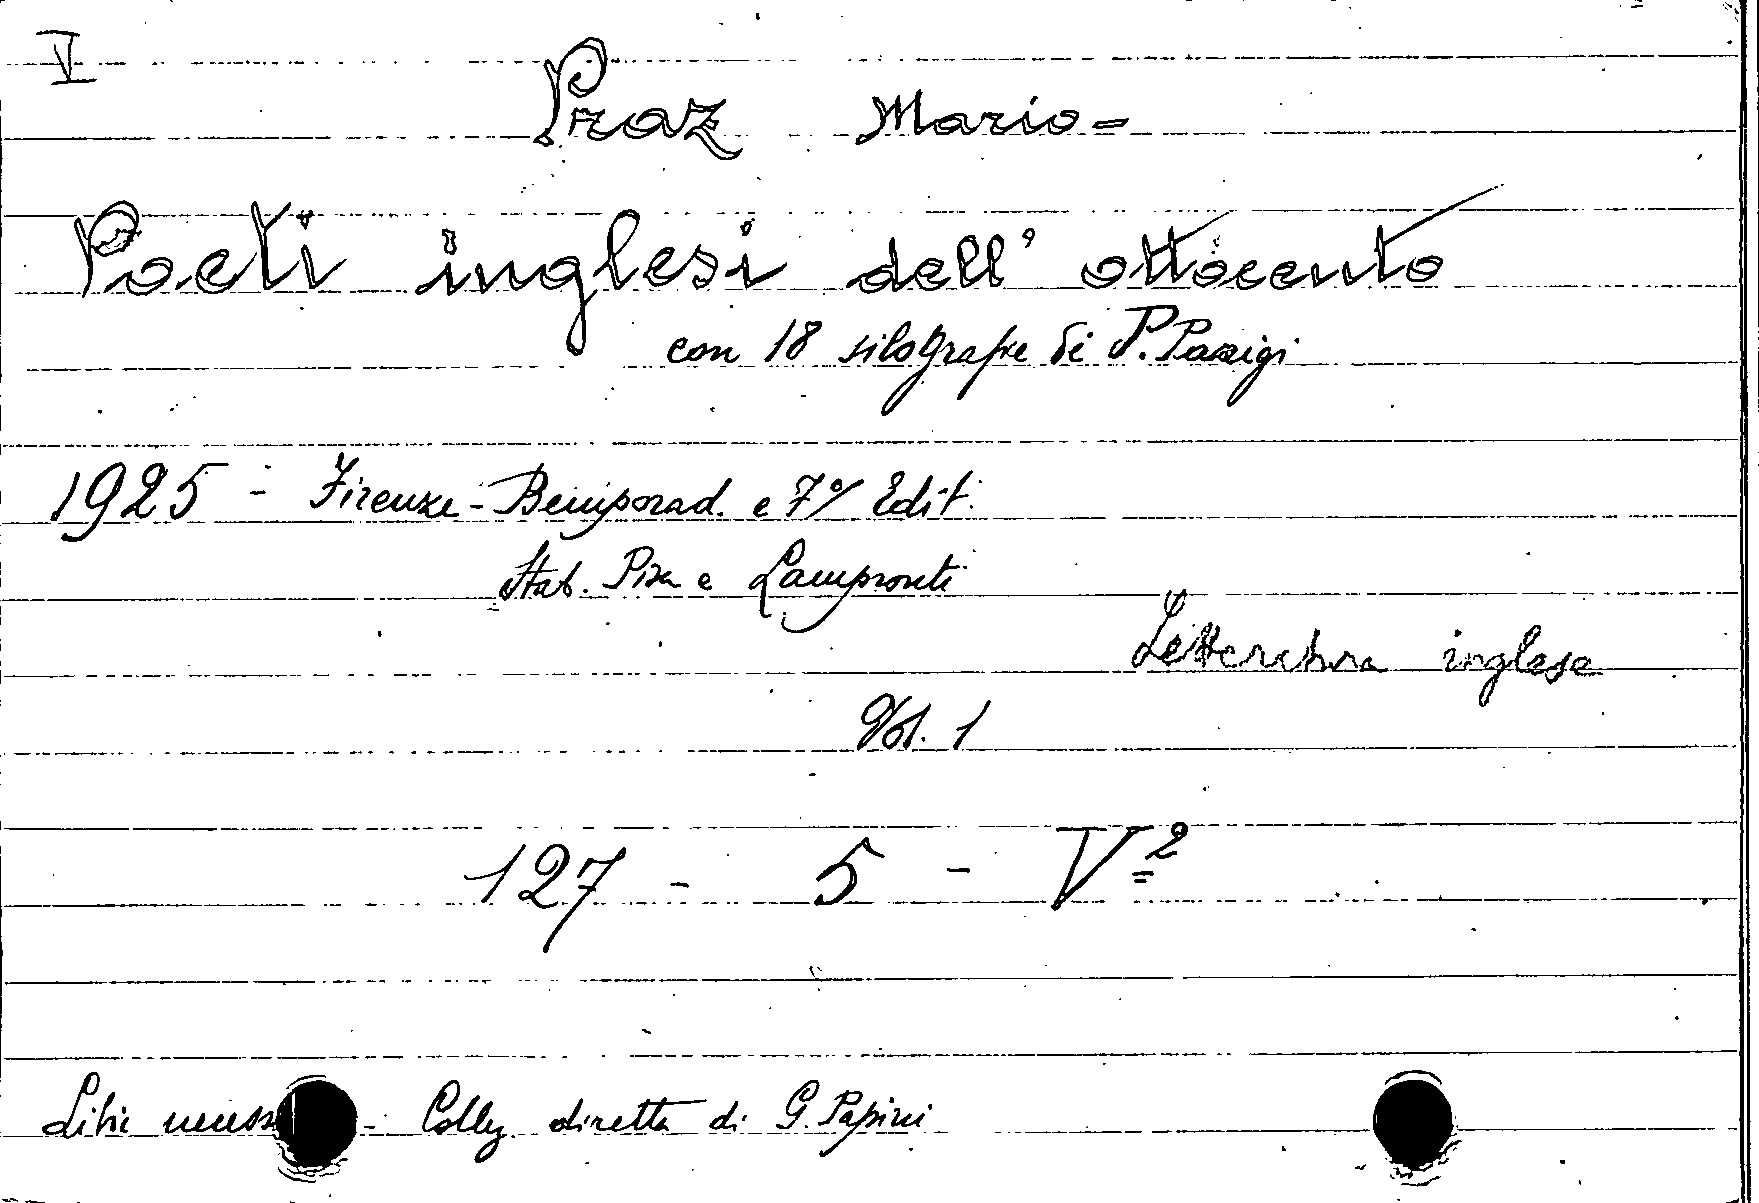 V
Praz Mario=
Poeti inglesi dell' ottocento
con 18 silografie di P. Parigi
1925 - Firenze - Bemporad. e F° Edit.
Stab. Pisa e Lampronti
Letteratura inglese
Vol. 1
127 - 5 - V²
Libri necess - Coll. diretta di G. Papini